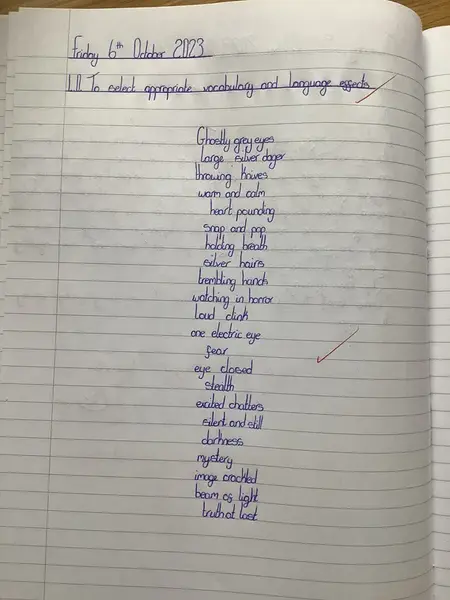 Friday 6th October 2023
L.O. To select appropriate vocabulary and language effects
Ghostly grey eyes
large silver dager
throwing knives
warm and calm
heart pounding
snap and pop
holding breath
silver hairs
trembling hands
watching in horror
Loud clink
one electric eye
fear
eye closed
stealth
excited chatters
silent and still
darkness
mystery
image crackled
beam of light
truth at last